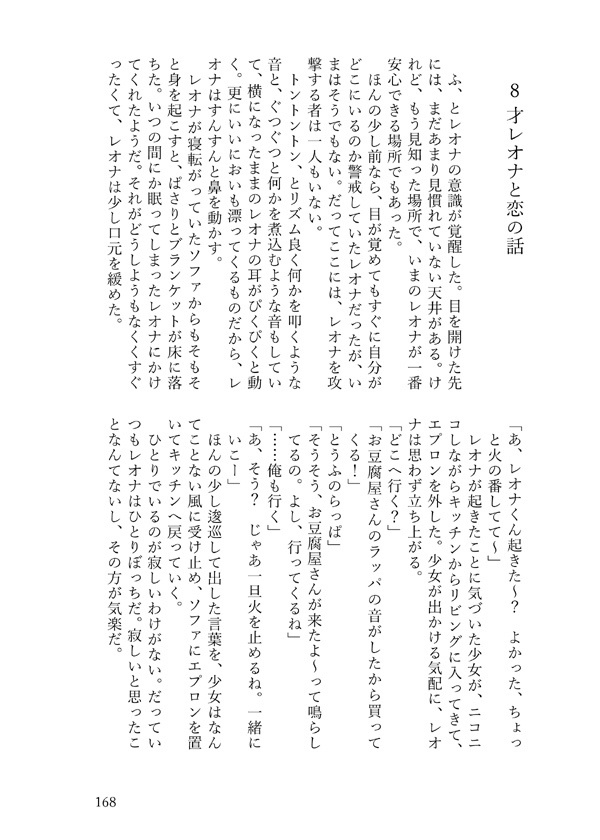 8才レオナと恋の話
ふ、とレオナの意識が覚醒した。目を開けた先
には、まだあまり見慣れていない天井がある。け
れど、もう見知った場所で、いまのレオナが一番
安心できる場所でもあった。
ほんの少し前なら、目が覚めてもすぐに自分が
どこにいるのか警戒していたレオナだったが、い
まはそうでもない。だってここには、レオナを攻
撃する者は一人もいない。
トントントン、とリズム良く何かを叩くような
音と、ぐつぐつと何かを煮込むような音もしてい
て、横になったままのレオナの耳がぴくぴくと動
く。更にいいにおいも漂ってくるものだから、レ
オナはすんすんと鼻を動かす。
レオナが寝転がっていたソファからもそもそ
と身を起こすと、ばさりとブランケットが床に落
ちた。いつの間にか眠ってしまったレオナにかけ
てくれたようだ。それがどうしようもなくくすぐ
ったくて、レオナは少し口元を緩めた。
「あ、レオナくん起きた〜？　よかった、ちょっ
と火の番してて〜」
レオナが起きたことに気づいた少女が、ニコニ
コしながらキッチンからリビングに入ってきて、
エプロンを外した。少女が出かける気配に、レオ
ナは思わず立ち上がる。
「どこへ行く？」
「お豆腐屋さんのラッパの音がしたから買って
くる！」
「とうふのらっぱ」
「そうそう、お豆腐屋さんが来たよ〜って鳴らし
てるの。よし、行ってくるね」
「……俺も行く」
「あ、そう？　じゃあ一旦火を止めるね。一緒に
いこー」
ほんの少し逡巡して出した言葉を、少女はなん
てことない風に受け止め、ソファにエプロンを置
いてキッチンへ戻っていく。
ひとりでいるのが寂しいわけがない。だってい
つもレオナはひとりぼっちだ。寂しいと思ったこ
となんてないし、その方が気楽だ。
168